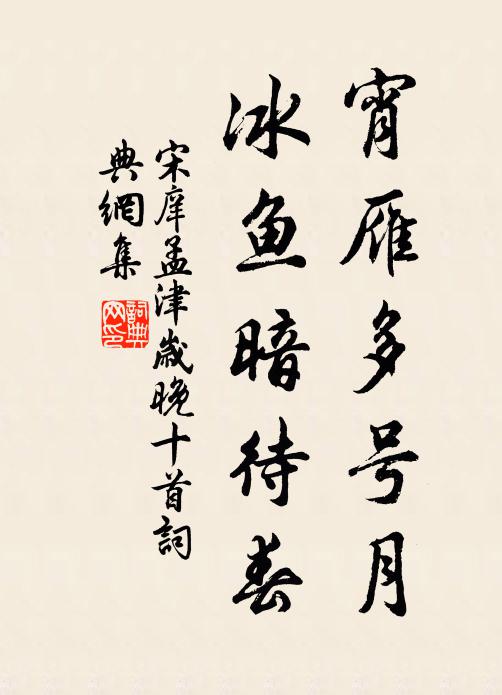 宵雁多号月
冰鱼暗待春
宋庠孟津歲晚十首詞
典網集
詞典
网印